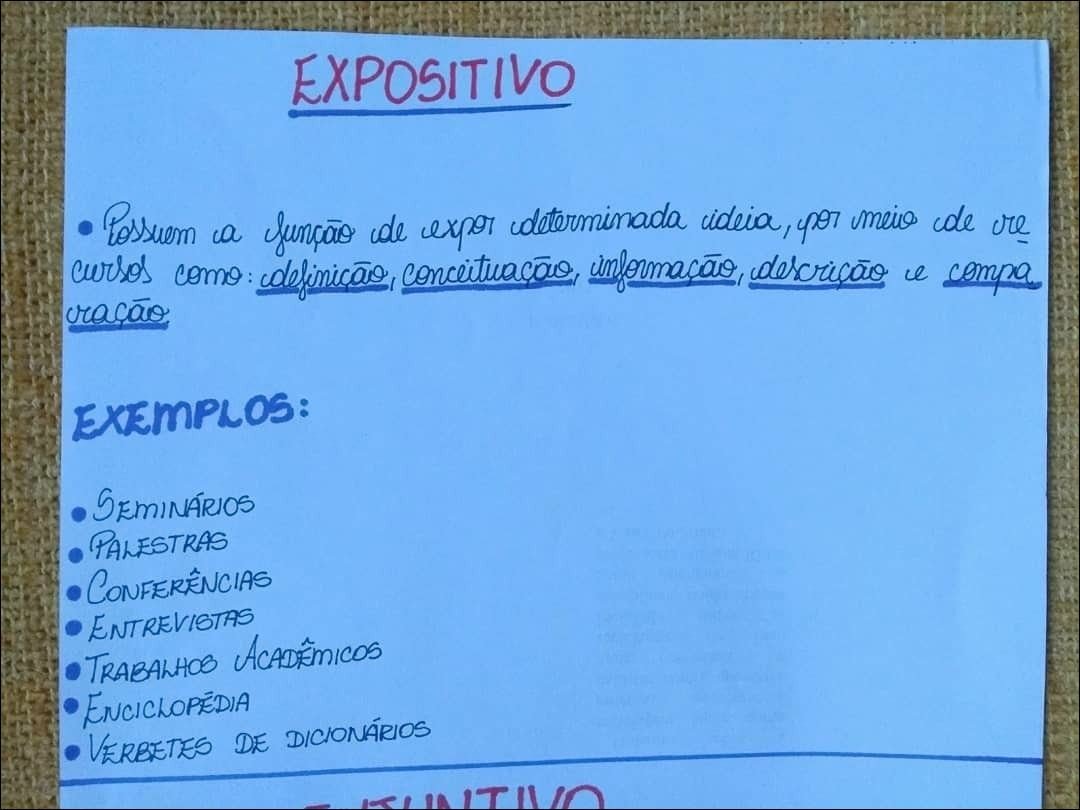 EXPOSITIVO
• Possuem a função de expor determinada ideia, por meio de re
cursos como: definição, conceituação, informação, descrição e compa
ração.
EXEMPLOS:
• SEMINÁRIOS
• PALESTRAS
• CONFERÊNCIAS
• ENTREVISTAS
• TRABALHOS ACADÊMICOS
• ENCICLOPÉDIA
• VERBETES DE DICIONÁRIOS